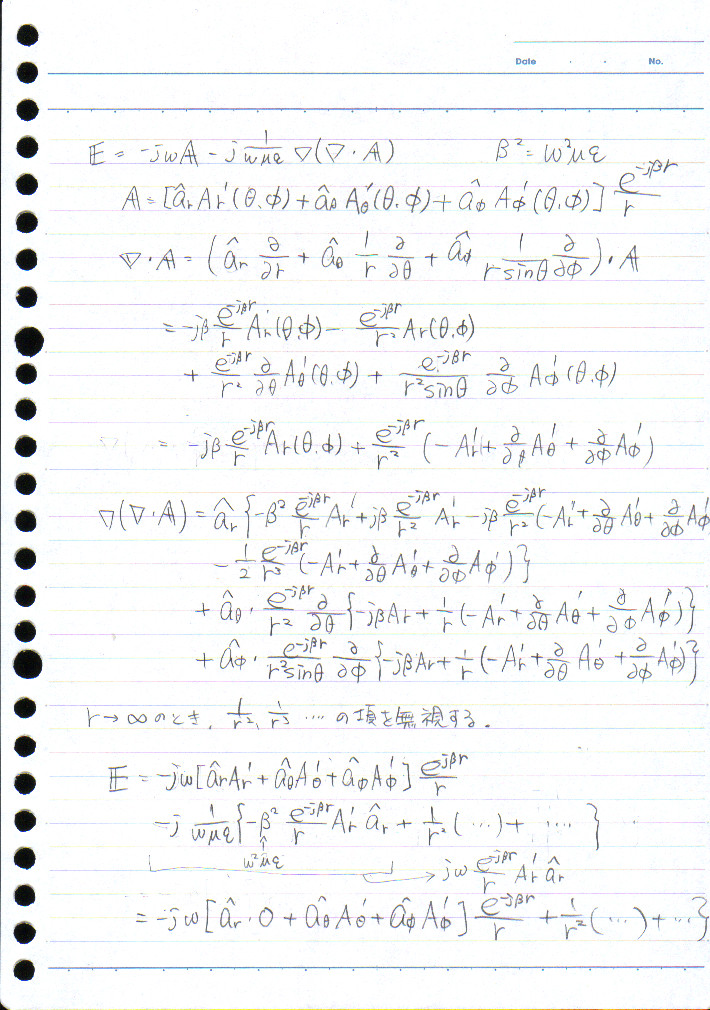 Date · · No.
𝔼 = -jω𝔸 - j 1/(ωμε) ∇(∇·𝔸)    β² = ω²με
𝔸 = [âr Ar'(θ.φ) + âθ Aθ'(θ.φ) + âφ Aφ'(θ.φ)] e^{-jβr}/r
∇·𝔸 = (âr ∂/∂r + âθ 1/r ∂/∂θ + âφ 1/(r sinθ) ∂/∂φ)·𝔸
= -jβ e^{-jβr}/r Ar'(θ.φ) - e^{-jβr}/r² Ar(θ,φ)
+ e^{-jβr}/r² ∂/∂θ Aθ'(θ.φ) + e^{-jβr}/(r² sinθ) ∂/∂φ Aφ'(θ.φ)
= -jβ e^{-jβr}/r Ar'(θ.φ) + e^{-jβr}/r² (-Ar' + ∂/∂θ Aθ' + ∂/∂φ Aφ')
∇(∇·𝔸) = âr {-β² e^{-jβr}/r Ar' + jβ e^{-jβr}/r² Ar' - jβ e^{-jβr}/r² (-Ar' + ∂/∂θ Aθ' + ∂/∂φ Aφ'
- 1/2 e^{-jβr}/r³ (-Ar' + ∂/∂θ Aθ' + ∂/∂φ Aφ')}
+ âθ · e^{-jβr}/r² ∂/∂θ {-jβAr + 1/r (-Ar' + ∂/∂θ Aθ' + ∂/∂φ Aφ')}
+ âφ · e^{-jβr}/(r² sinθ) ∂/∂φ {-jβAr + 1/r (-Ar' + ∂/∂θ Aθ' + ∂/∂φ Aφ')}
r→∞のとき、1/r², 1/r³ ‥‥ の項を無視する。
𝔼 = -jω[âr Ar' + âθ Aθ' + âφ Aφ'] e^{-jβr}/r
-j 1/(ωμε) {-β² e^{-jβr}/r Ar' âr + 1/r² (…) + ‥‥ }
↑ ω²με
→ jω e^{-jβr}/r Ar' âr
= -jω [âr · 0 + âθ Aθ' + âφ Aφ'] e^{-jβr}/r + 1/r² (…) + …}